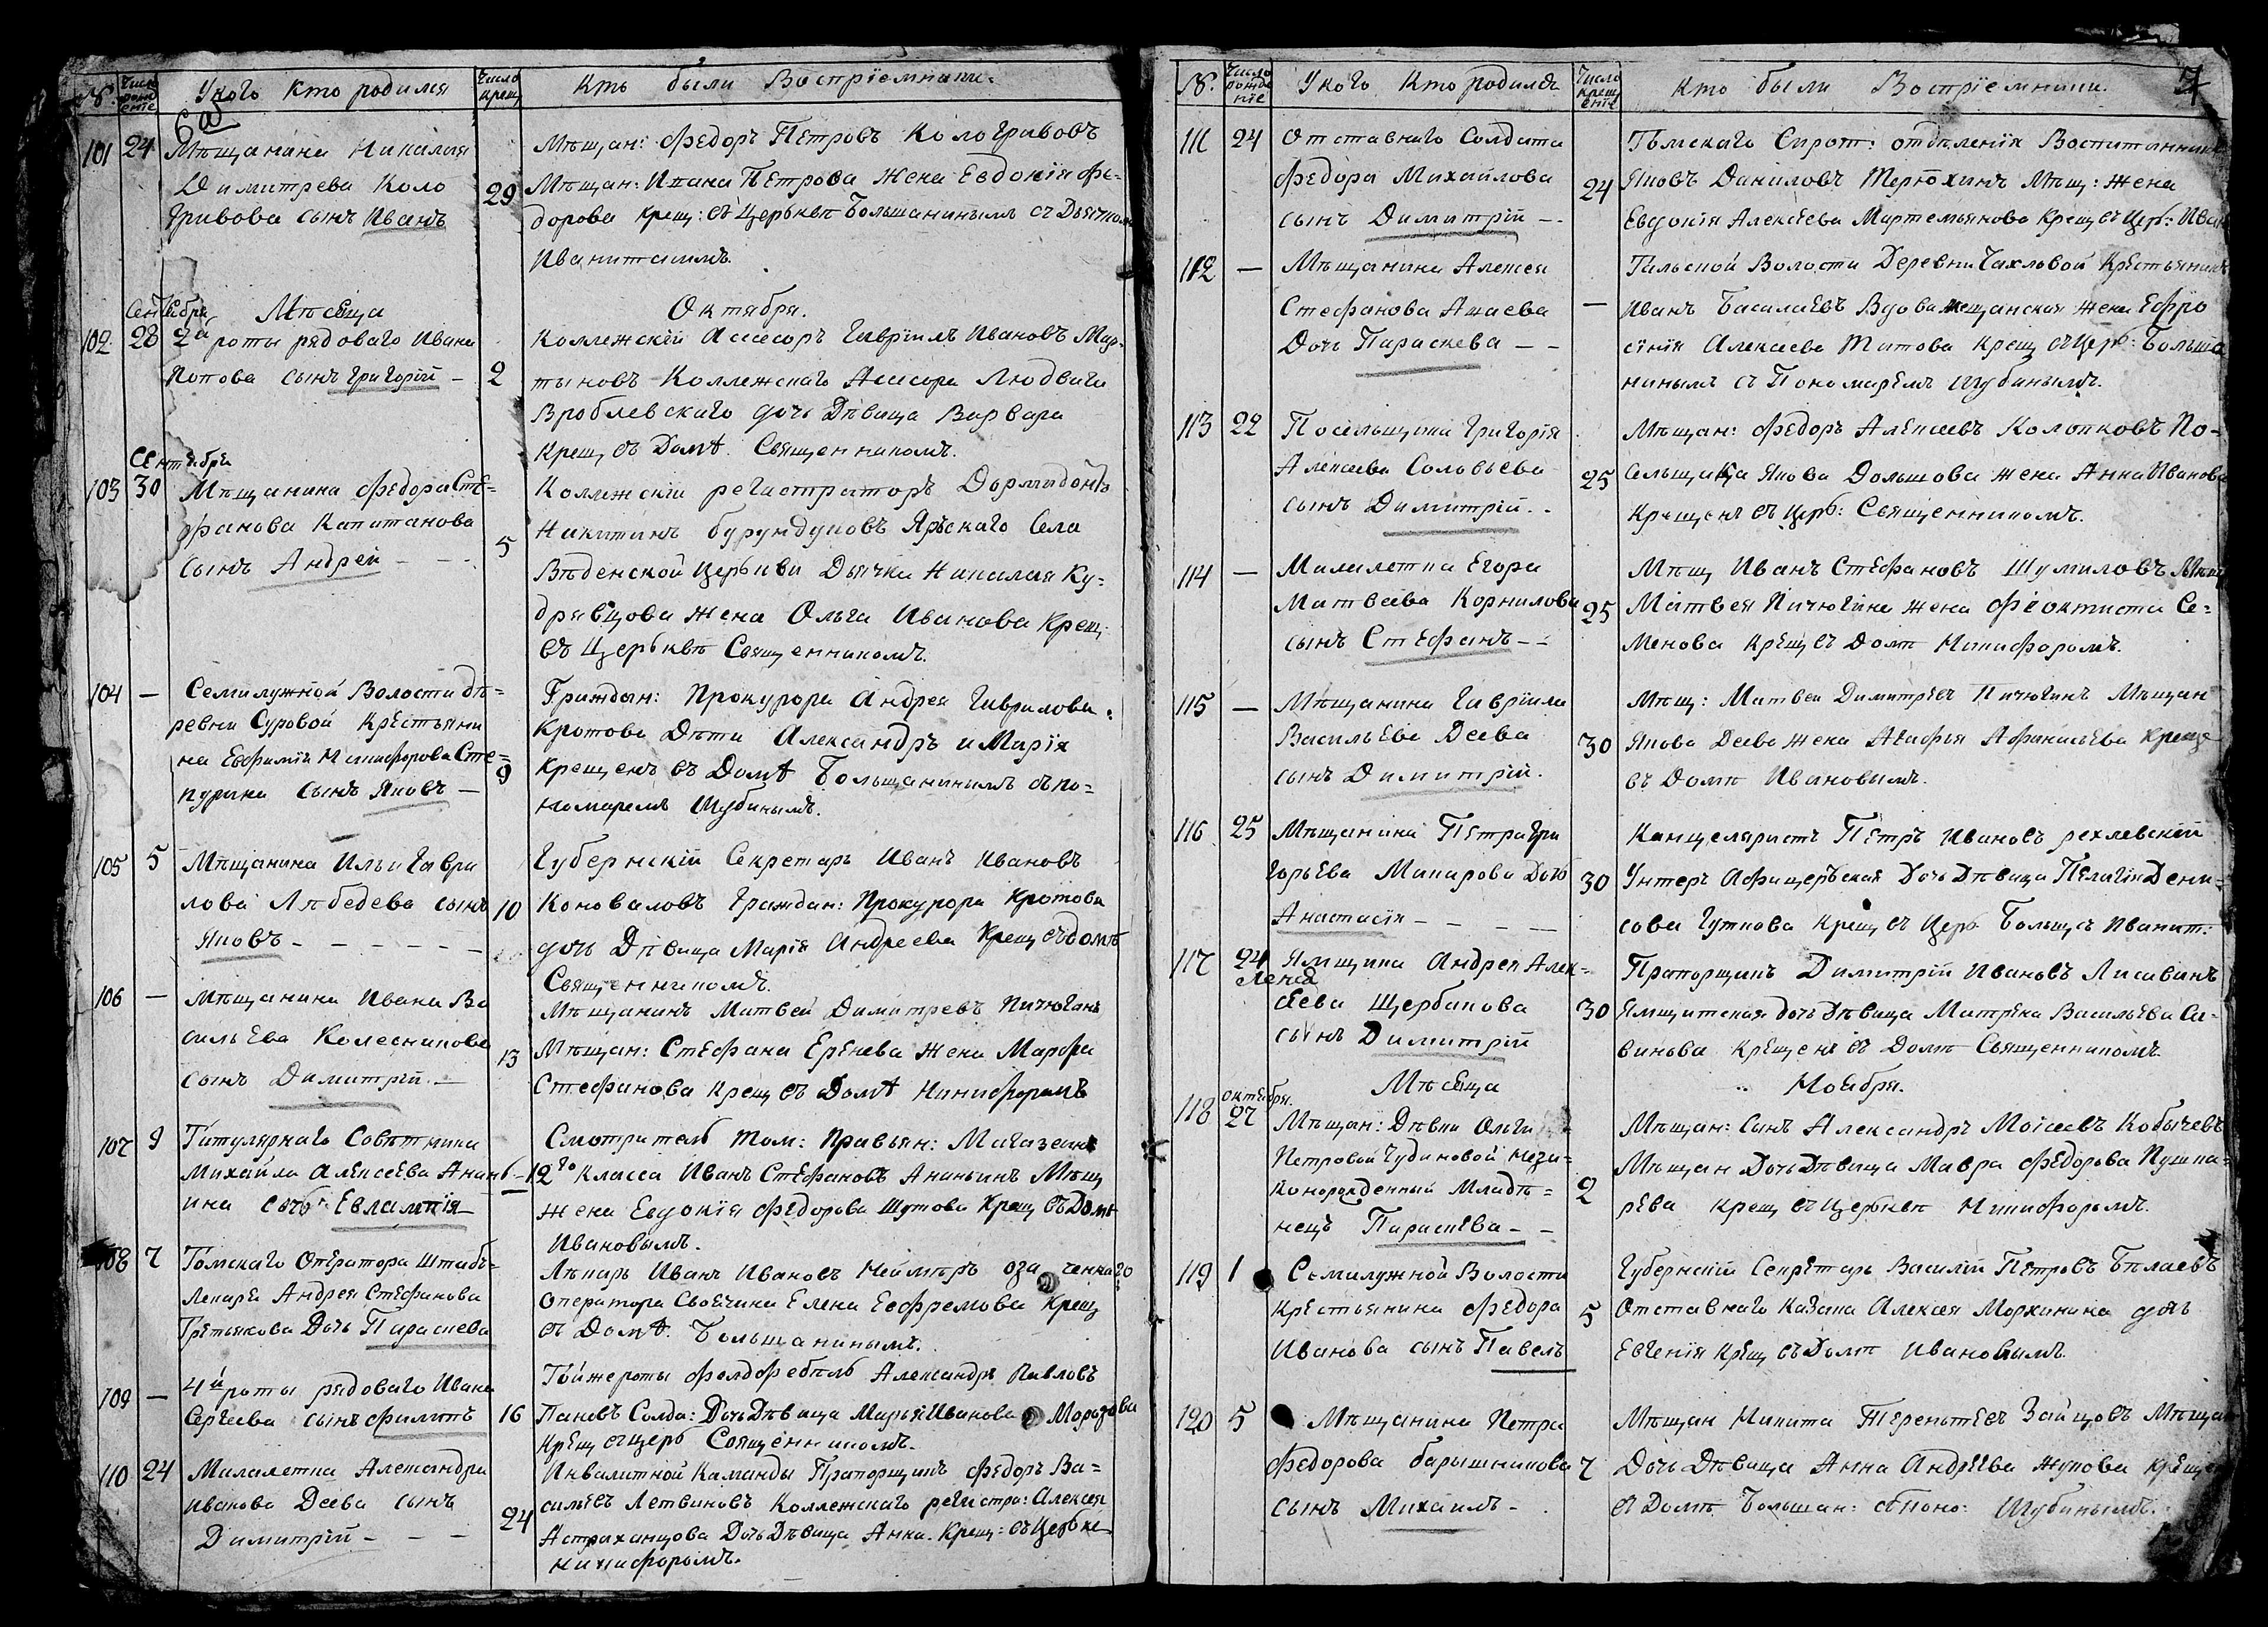 №. Число рождение У кого Кто родился Число крещ Кто были Воспріемники.
6 а
101 24 Мѣщанина Николая
Димитрева Коло
гривова сынъ Иванъ
29
Мѣщан: Федоръ Петровъ Кологривовъ
Мѣщан: Ивана Петрова Жена Евдокія Фе-
дорова крещ: въ Церьквѣ Большанинымъ съ Дьячком
Иваницкимъ.
Сентебря Мѣсеца Октября.
102 28 2й роты рядоваго Ивана
Попова сынъ Григорій –
2
Коллежскій Ассесоръ Гавріилъ Ивановъ Мар-
тыновъ Коллежскаго Асесора Людвига
Вроблевскаго дочь Дѣвица Варвара
Крещ въ Домѣ. Священникомъ.
Сентебря
103 30 Мѣщанина Федора Сте=
фанова Капитанова
сынъ Андрей – – –
5
Коллежскіи регистраторъ Дормидонтъ
Никитинъ Бурундуковъ Ярскаго Села
Введенской Церькви Дьячка Николая Ку-
дрявцова Жена Ольга Иванова Крещ:
въ Церьквѣ Священникомъ.
104 – Семилужной Волости дѣ=
ревни Суровой Крестьяни
на Евфимія Никифорова Сте=
пурина сынъ Яковъ –
9
Граждан: Прокурора Андрея Гаврилова
Кротова Дѣти Александръ и Марія
Крещенъ въ Домѣ Большанинымъ съ по=
номаремъ Шубинымъ.
105 5 Мѣщанина Ильи Гаври
лова Лебедева сынъ
Яковъ – – – – – –
10
Губернскій Секретарь Иванъ Ивановъ
Коноваловъ Граждан: Прокурора Кротова
дочь Дѣвица Марія Андреева Крещ въ домѣ
Священникомъ.
106 – Мѣщанина Ивана Ва
сильева Колесникова
сынъ Димитрій. –
13
Мѣщанинъ Матвей Димитревъ Пичюгинъ
Мѣщан: Стефана Еренева Жена Марфа
Стефанова Крещ въ Домѣ Никифоромъ
107 9 Титулярнаго Совѣтника
Михаила Алексеева Анань
ина дочь Евлампія
–
Смотритель Том: Правьян: Магазеина
12го класса Иванъ Стефановъ Ананьинъ Мѣщ
жена Евдокія Федорова Шутова Крещ въ Домѣ
Ивановымъ.
108 7 Томскаго Оператора Штабъ-
Лекаря Андрея Стефанова
Третьякова Дочь Параскева
Лѣкарь Иванъ Ивановъ Неймеръ озна ченнаго
Оператора Своячина Елена Еофремова Крещ
въ Домѣ. Большанинымъ.
109 – 4й роты рядоваго Ивана
Сергеева сынъ Филипъ
16
Той же роты Фелдфебель Александръ Павловъ
Паневъ Солда: Дочь Дѣвица Марья Иванова Морозова
Крещ въ церь Священникомъ.
110 24 Малолетка Александра
Иванова Деева сынъ
Димитрій – – –
24
Инвалитной Каманды Прапорщикъ Федоръ Ва=
сильевъ Летвиновъ Коллежскаго регистра: Алексея
Астраханцова Дочь Дѣвица Анна. Крещ: въ Церькве
Никифоромъ.
7
№. Число рожденіе У кого Кто родился Число крещеніе Кто были Воспріемники.
111 24 Отставнаго Солдата
Федора Михайлова
сынъ Димитрій –
24
Томскаго Сирот: отдѣленія Воспитанникъ
Яковъ Даниловъ Терюхинъ Мѣщ: жена
Евдокія Алексеева Мартемьянова Крещ въ Цер: Иван
112 – Мѣщанина Алексея
Стефанова Акаева
Дочь Параскева – –
–
Тальской Волости Деревни Чахловой Крестьянинъ
Иванъ Басалаевъ Вдова мещанская Жена Ефро
сінія Алексеева Титова Крещ въ Цер: Больша
нинымъ съ Пономаремъ Шубинымъ.
113 22 Посельщика Григорія
Алексеева Соловьева
сынъ Димитрій. .
25
Мѣщан: Федоръ Алексеевъ Колопковъ По-
сельщика Якова Дольшова жена Анна Иванова
Крещенъ въ Церь: Священникомъ.
114 – Малилетка Егора
Матвеева Корнилова
сынъ Стефанъ – –
25
Мѣщ Иванъ Стефановъ Шумиловъ Мѣщ
Матвея Пичюгина жена Феоктиста Се=
менова Крещ въ Домѣ Никифоромъ.
115 – Мѣщанина Гавріила
Васильева Деева
сынъ Димитрій.
30
Мѣщ: Матвеи Димитревъ Пичюгинъ Мѣщан
Якова Деева Жена Агафья Афанасьева Крещен
въ Домѣ Ивановымъ.
116 25 Мѣщанина Петра Гри
горьева Макарова Дочь
Анастасія – – –
30
Канцеляристъ Петръ Ивановъ Рехлевскій
Унтеръ Афицерьская Дочь Дѣвица Пелагія Дени=
сова Гуткова Крещ въ Церь Больщ съ Иваниц:
117 24 Ямщика Андрея Алек=
сеева Щербакова
сынъ Димитрій
30
Прапорщикъ Димитрій Ивановъ Лисавинъ
Ямщитская дочь Дѣвица Матрена Васильева Са-
винова Крещенъ въ Домѣ Священникомъ.
Мѣсеца Ноября.
Октебря.
118 27 Мѣщан: Дѣвки Ольги
Петровой Чудиновой Неза=
конорожденный Младе=
нецъ Параскева – –
2
Мѣщан: Сынъ Александръ Моісеевъ Кобычевъ
Мѣщан Дочь Дѣвица Мавра Федорова Пушка=
рева крещ въ Церьквѣ Никифоромъ.
119 1 Семилужной Волости
Крестьянина Федора
Иванова сынъ Павелъ
5
Губернскій Секретарь Василій Петровъ Бѣлаевъ
Отставнаго Казака Алексея Морхинина дочь
Евгенія Крещ въ Домѣ Ивановымъ.
120 5 Мѣщанина Петра
Федорова Барышникова
сынъ Михаилъ –
7
Мѣщан Никита Терентьевъ Зайцовъ Мѣщан
Дочь Дѣвица Анна Андреева Жукова Крещен
въ Домѣ Большан: съ Поно: Шубинымъ.